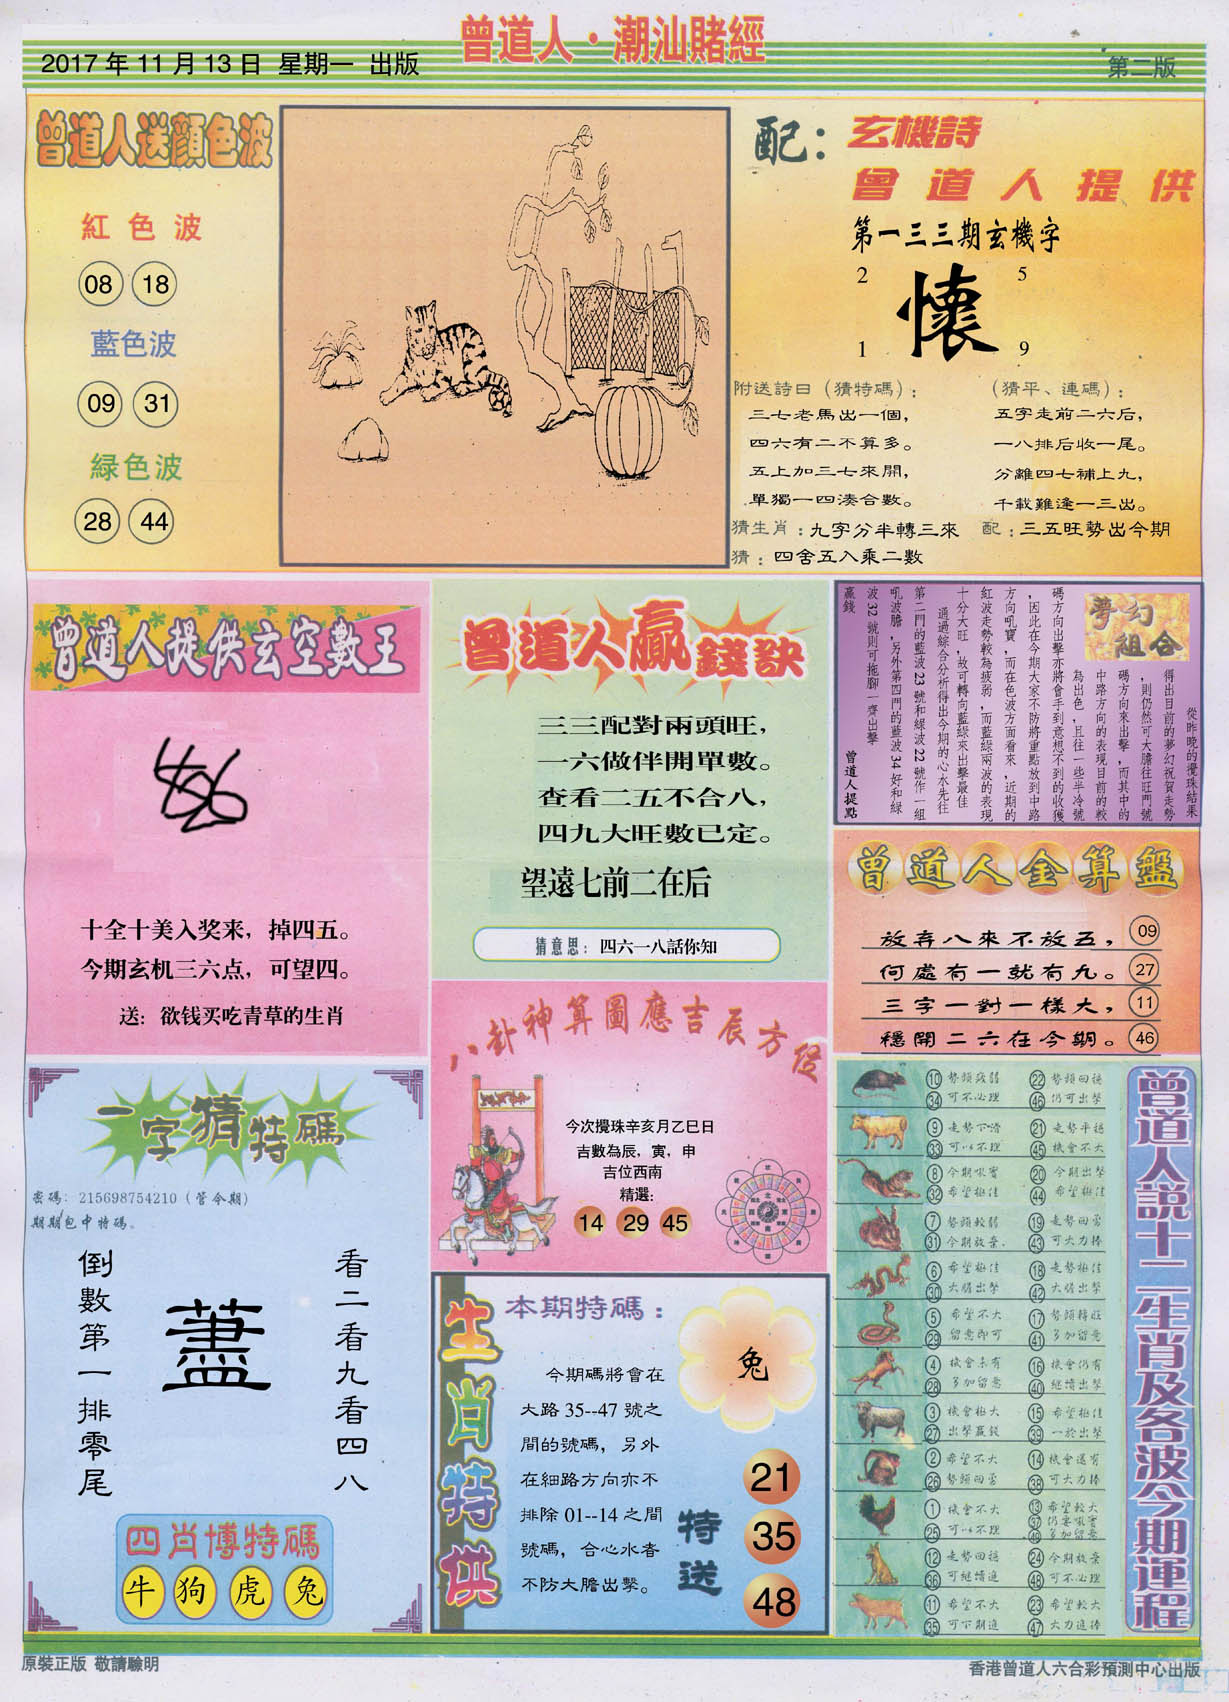 曾道人·潮汕賭經
2017年11月13日 星期一 出版
第二版
曾道人送顏色波
紅色波
08 18
藍色波
09 31
緑色波
28 44
配：玄機詩
曾道人提供
第一三三期玄機字
2 5
懷
1 9
附送詩曰（猜特碼）：
三七老馬出一個，
四六有二不算多。
五上加三七來開，
單獨一四湊合數。
（猜平、連碼）：
五字走前二六后，
一八排后收一尾。
分離四七補上九，
千載難逢一三出。
猜生肖：九字分半轉三來
配：三五旺勢出今期
猜：四舍五入乘二數
曾道人提供玄空數王
十全十美入奖来，掉四五。
今期玄机三六点，可望四。
送：欲钱买吃青草的生肖
曾道人贏錢訣
三三配對兩頭旺，
一六做伴開單數。
查看二五不合八，
四九大旺數已定。
望遠七前二在后
猜意思：四六一八話你知
夢幻組合
從昨晚的攪珠結果
得出目前的夢幻祝賀走勢
，則仍然可大膽往旺門號
碼方向來出擊，而其中的
中路方向的表現目前的較
為出色，且往一些半冷號
碼方向出擊亦將會手到意想不到的收獲
，因此在今期大家不防將重點放到中路
方向吼寶，而在色波方面看來，近期的
紅波走勢較為疲弱，而藍綠兩波的表現
十分大旺，故可轉向藍綠來出擊最佳
通過綜合分析得出今期的心水先往
第二門的藍波23號和緑波22號作一組
吼波膽，另外第四門的藍波34好和緑
波32號則可拖腳一齊出擊
贏錢
曾道人提點
曾道人金算盤
放弃八來不放五， 09
何處有一就有九。 27
三字一對一樣大， 11
穩開二六在今期。 46
八卦神算圖應吉辰方位
今次攪珠辛亥月乙巳日
吉數為辰，寅，申
吉位西南
精選：
14 29 45
一字猜特碼
密碼：215698754210（管令期）
期期包中特碼。
看二看九看四八
倒數第一排零尾
四肖博特碼
牛 狗 虎 兔
生肖特供
本期特碼：
兔
今期碼將會在
大路35--47號之
間的號碼，另外
在細路方向亦不
排除01--14之間
號碼，合心水者
不防大膽出擊。
特送
21
35
48
曾道人說十二生肖及各波今期運程
10 勢頭疲弱 22 勢頭回穩
34 可不必理 46 仍可出擊
9 走勢下滑 21 走勢平穩
33 可以不理 45 機會不大
8 今期吼寶 20 今期出擊
32 希望極佳 44 希望極佳
7 勢頭較弱 19 走勢回勇
31 今期放棄. 43 可大力捧
6 希望極佳 18 走勢極佳
30 大膽出擊 42 大膽出擊
5 希望不大 17 勢頭轉旺
29 留意即可 41 多加留意
4 機會未有 16 機會仍有
28 多加留意 40 繼續出擊
3 機會極大 15 希望極佳
27 出擊贏錢 39 一於出擊
2 希望不大 14 機會還有
26 勢頭回勇 38 可大力捧
1 機會不大 13 希望較大
37 仍要吼實
25 可以不理 49 多加留意
12 走勢回穩 24 今期放棄
36 可繼續追 48 可不必理
11 希望不大 23 希望較大
35 可下期追 47 大力追捧
原裝正版 敬請驗明
香港曾道人六合彩預測中心出版